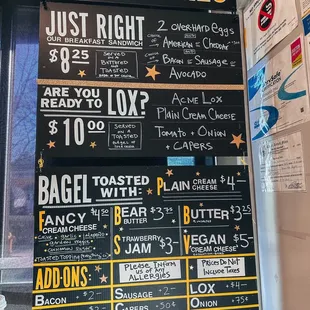 JUST RIGHT
OUR BREAKFAST SANDWICH
$8.25
SERVED
ON A
BUTTERED
TOASTED
2 OVERHARD EGGS
AMERICAN = CHEDAR
BACON = SAUSAGE =
AVOCADO
ARE YOU
READY TO LOX?
$10.00
SERVED
ON A
TOASTED
ACME LOX
PLAIN CREAM CHEESE
TOMATO + ONION
+ CAPERS
BAGEL TOASTED
WITH:
PLAIN CREAM
CHEESE $4
FANCY $4.50
CREAM CHEESE
BEAR $3.75
BUTTER
BUTTER $3.25
STRAWBERRY
JAM $3
VEGAN $5
"CREAM CHEESE"
ADD-ONS:
PLEASE INFORM
US OF ANY
ALLERGIES
PRICES DO NOT
INCLUDE TAXES
BACON $2
SAUSAGE $2
LOX $4
CAPERS .50
ONION